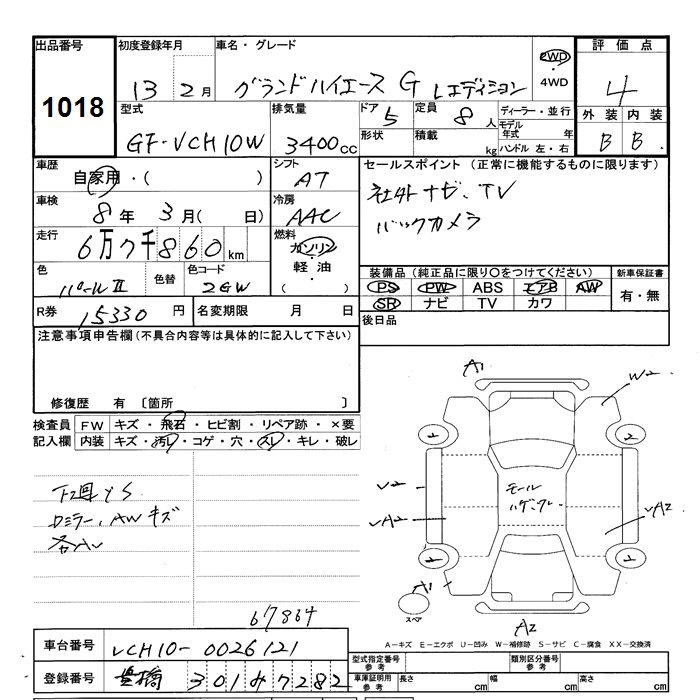 出品番号 初度登録年月 車名・グレード 評価点
1018 13 2月 グランドハイエース G Lエディション 2WD ・ 4WD 4
型式 排気量 ドア 定員 ディーラー・並行 外装 内装
GF-VCH10W 3400cc 5 8人 モデル年式 年 B B
形状 積載 kg ハンドル 左・右
車歴 シフト セールスポイント (正常に機能するものに限ります)
自家用・( ) AT 社外ナビ、TV
車検 冷房 バックカメラ
8年 3月( 日) AAC
走行 燃料
6万7千860km ガソリン・軽油・( )
色 色替 色コード 装備品 (純正品に限り○をつけてください) 新車保証書
パールII 2GW PS PW ABS エアB AW 有・無
SR ナビ TV カワ
R券 15330円 名変期限 月 日 後日品
注意事項申告欄 (不具合内容等は具体的に記入して下さい)
修復歴 有 〔箇所 〕
検査員記入欄 FW キズ・飛石・ヒビ割・リペア跡・×要
内装 キズ・汚レ・コゲ・穴・スレ・キレ・破レ
下廻りS
ミラー、AWキズ
各AU
67864
A1
W2
V2
VA2
モール
ハゲ
VA2
A1
スペア
A2
A-キズ E-エクボ U-凹み W-補修跡 S-サビ C-腐食 XX-交換済
車台番号 VCH10-0026121
型式指定番号 参考 類別区分番号 参考
登録番号 豊橋 301 7282
車庫証明用 参考 長さ cm 幅 cm 高さ cm